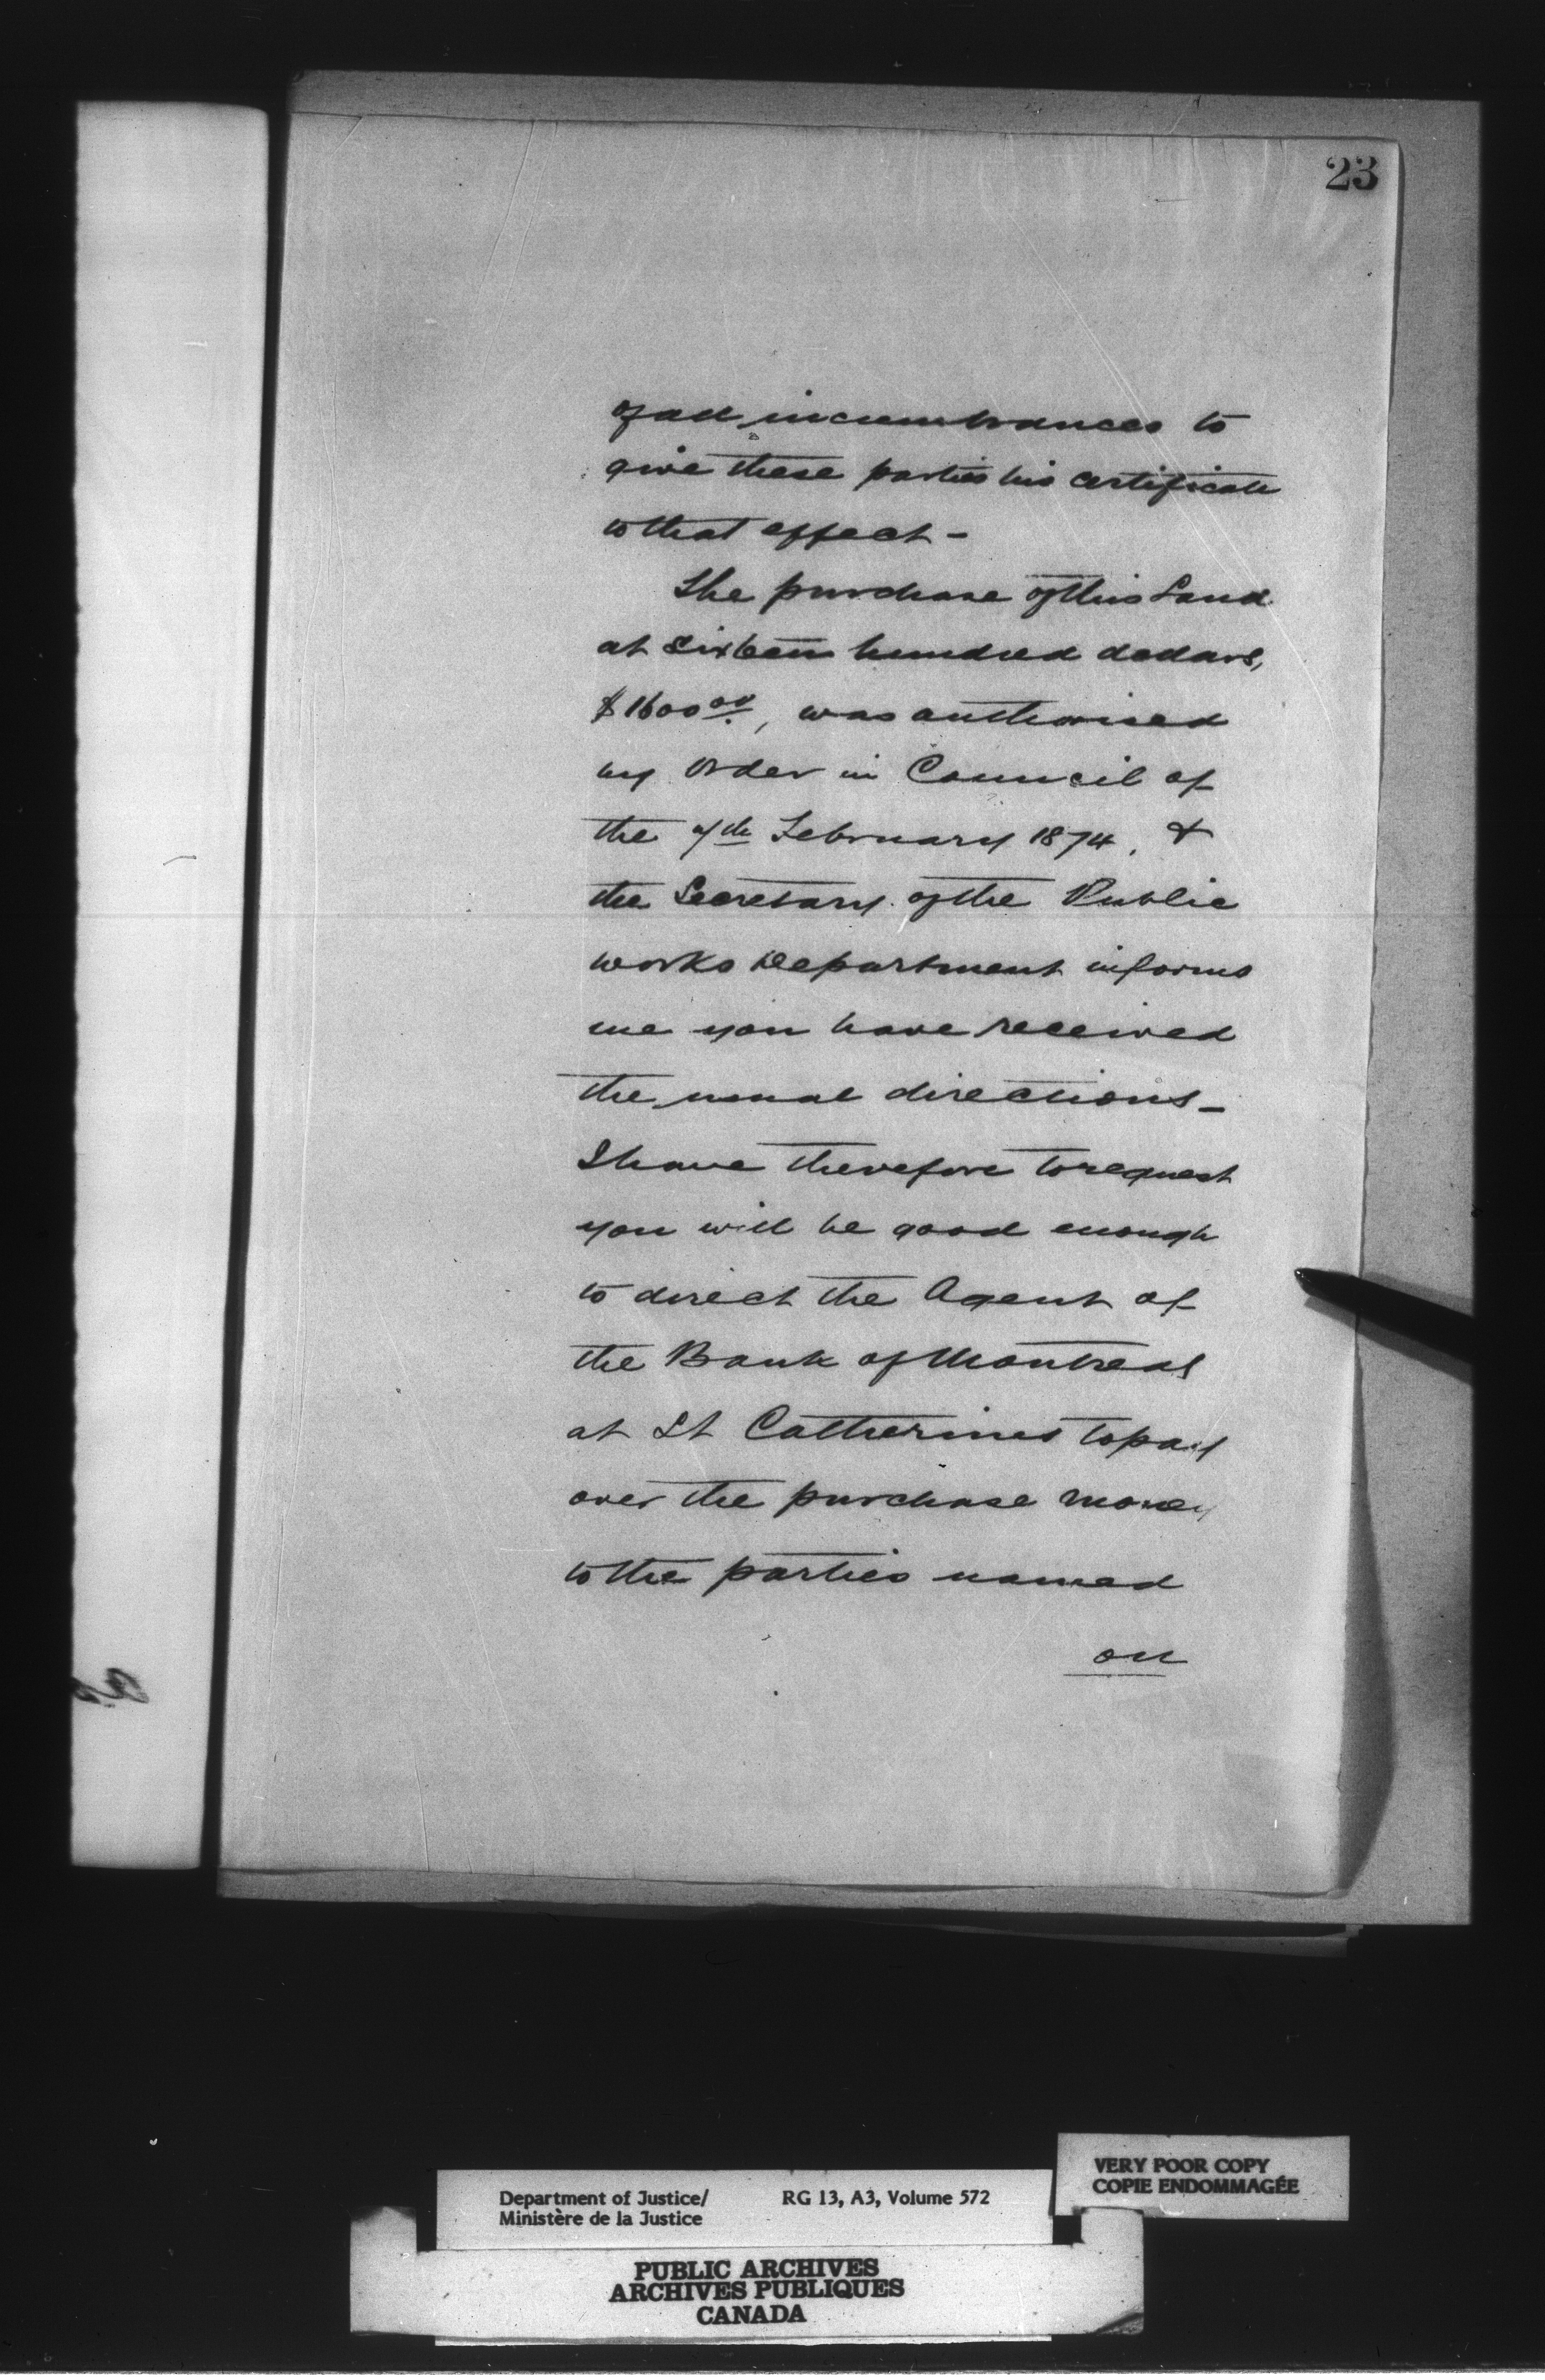 23
of all incumbrances to
give these parties his certificate
to that effect -
The purchase of this Land
at Sixteen hundred dollars,
$1600.00, was authorised
by Order in Council of
the 7th February 1874, &
the Secretary of the Public
works Department informs
me you have received
the usual directions -
I have therefore to request
you will be good enough
to direct the Agent of
the Bank of Montreal
at St Catherines to pay
over the purchase money
to the parties named
on
VERY POOR COPY
COPIE ENDOMMAGÉE
Department of Justice/ RG 13, A3, Volume 572
Ministère de la Justice
PUBLIC ARCHIVES
ARCHIVES PUBLIQUES
CANADA